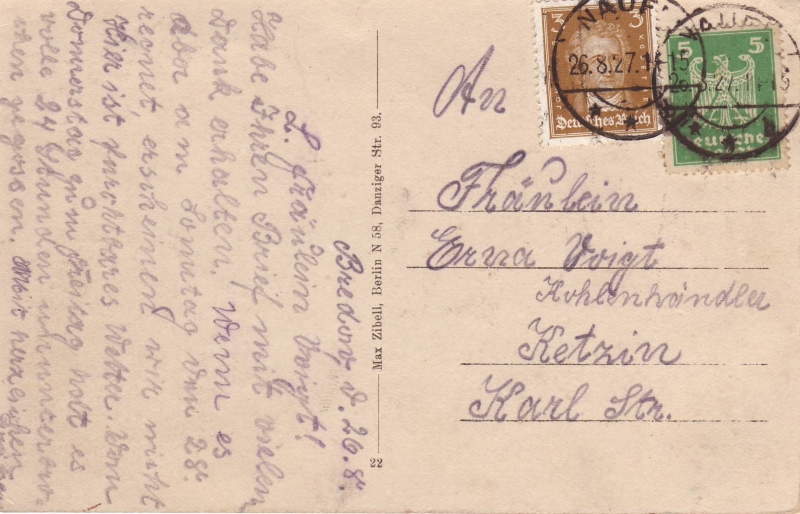 Bredow d. 26. 8.
L. Fräulein Voigt!
Habe Ihren Brief mit vielen
Dank erhalten. Wenn es
aber am Sonntag den 28.
recnet, ersheinen wir nicht
Hier ist furchtbares Wetter. Von
Donnerstag zum Freitag hat es
volle 24 Stunden ununterbro-
chen gegossen. Mit herzlichen
Max Zibell, Berlin N 58, Danziger Str. 93.
22
An
Fräulein
Erna Voigt
Kohlenhändler
Ketzin
Karl Str.
3
3
Deutsches Reich
5
5
NAUEN
26.8.27.
-15
NAUEN